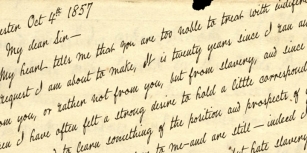 ester Oct 4th 1857
My dear Sir—
My heart tells me that you are too noble to treat with indiffer
request I am about to make, It is twenty years since I ran a
om you, or rather not from you, but from slavery, and since
en I have often felt a strong desire to hold a little correspond
to learn something of the position and prospects of
to me—and are still—indeed I
but hate slavery